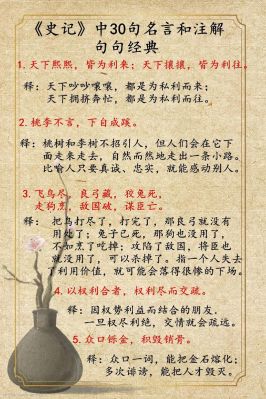 《史记》中30句名言和注解
句句经典
1.天下熙熙，皆为利来；天下攘攘，皆为利往。
释：天下吵吵嚷嚷，都是为私利而来；
天下拥挤奔忙，都是为私利而往。
2.桃李不言，下自成蹊。
释：桃树和李树不招引人，但人们会在它下
面走来走去，自然而然地走出一条小路。
比喻人只要真诚、忠实，就能感动别人。
3.飞鸟尽，良弓藏，狡兔死，
走狗烹，敌国破，谋臣亡。
释：把鸟打尽了，打完了，那良弓就没有
用处了；兔子已死，那狗也没用了，
不如烹了吃掉；攻陷了敌国，将臣也
就没用了，可以杀掉了。指一个人失去
了利用价值，就可能会落得很惨的下场。
4.以权利合者，权利尽而交疏。
释：因权势利益而结合的朋友，
一旦权尽利绝，交情就会疏远。
5.众口铄金，积毁销骨。
释：众口一词，能把金石熔化；
多次诽谤，能把人才毁灭。